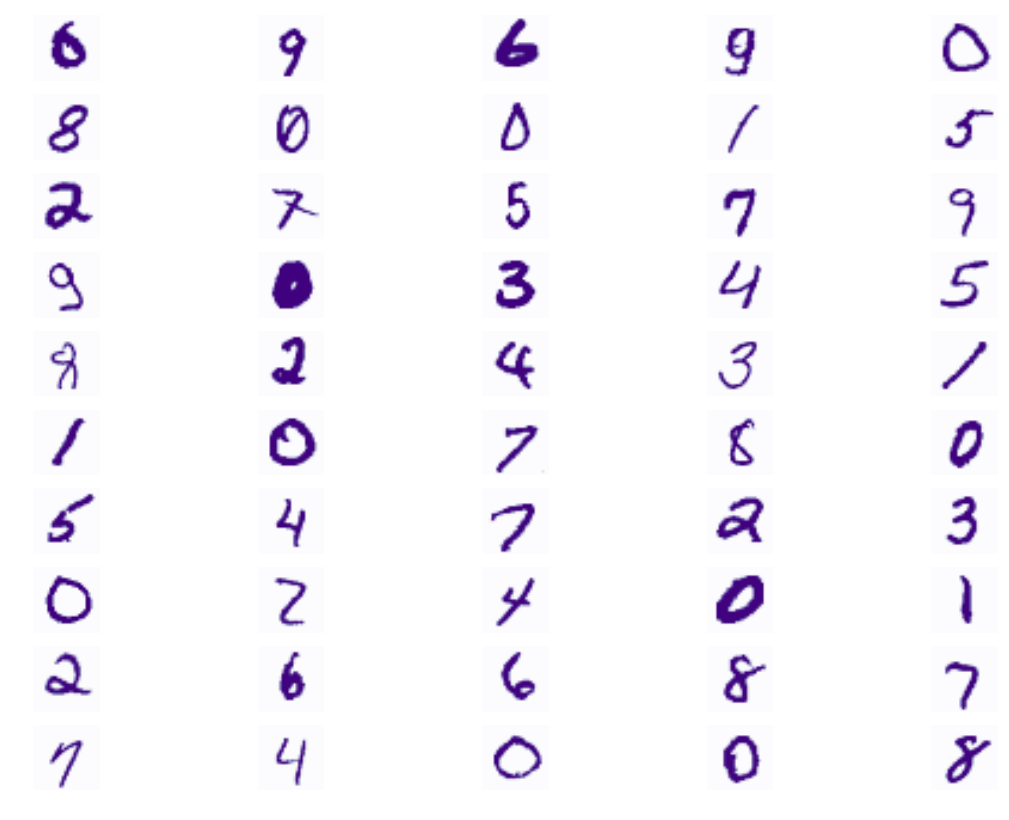 6 9 6 9 0
8 0 0 1 5
2 7 5 7 9
9 0 3 4 5
8 2 4 3 1
1 0 7 8 0
5 4 7 2 3
0 2 4 0 1
2 6 6 8 7
7 4 0 0 8